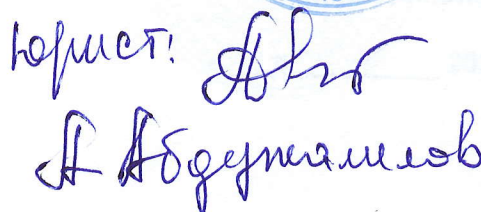 Юрист:
А Абдужалилов